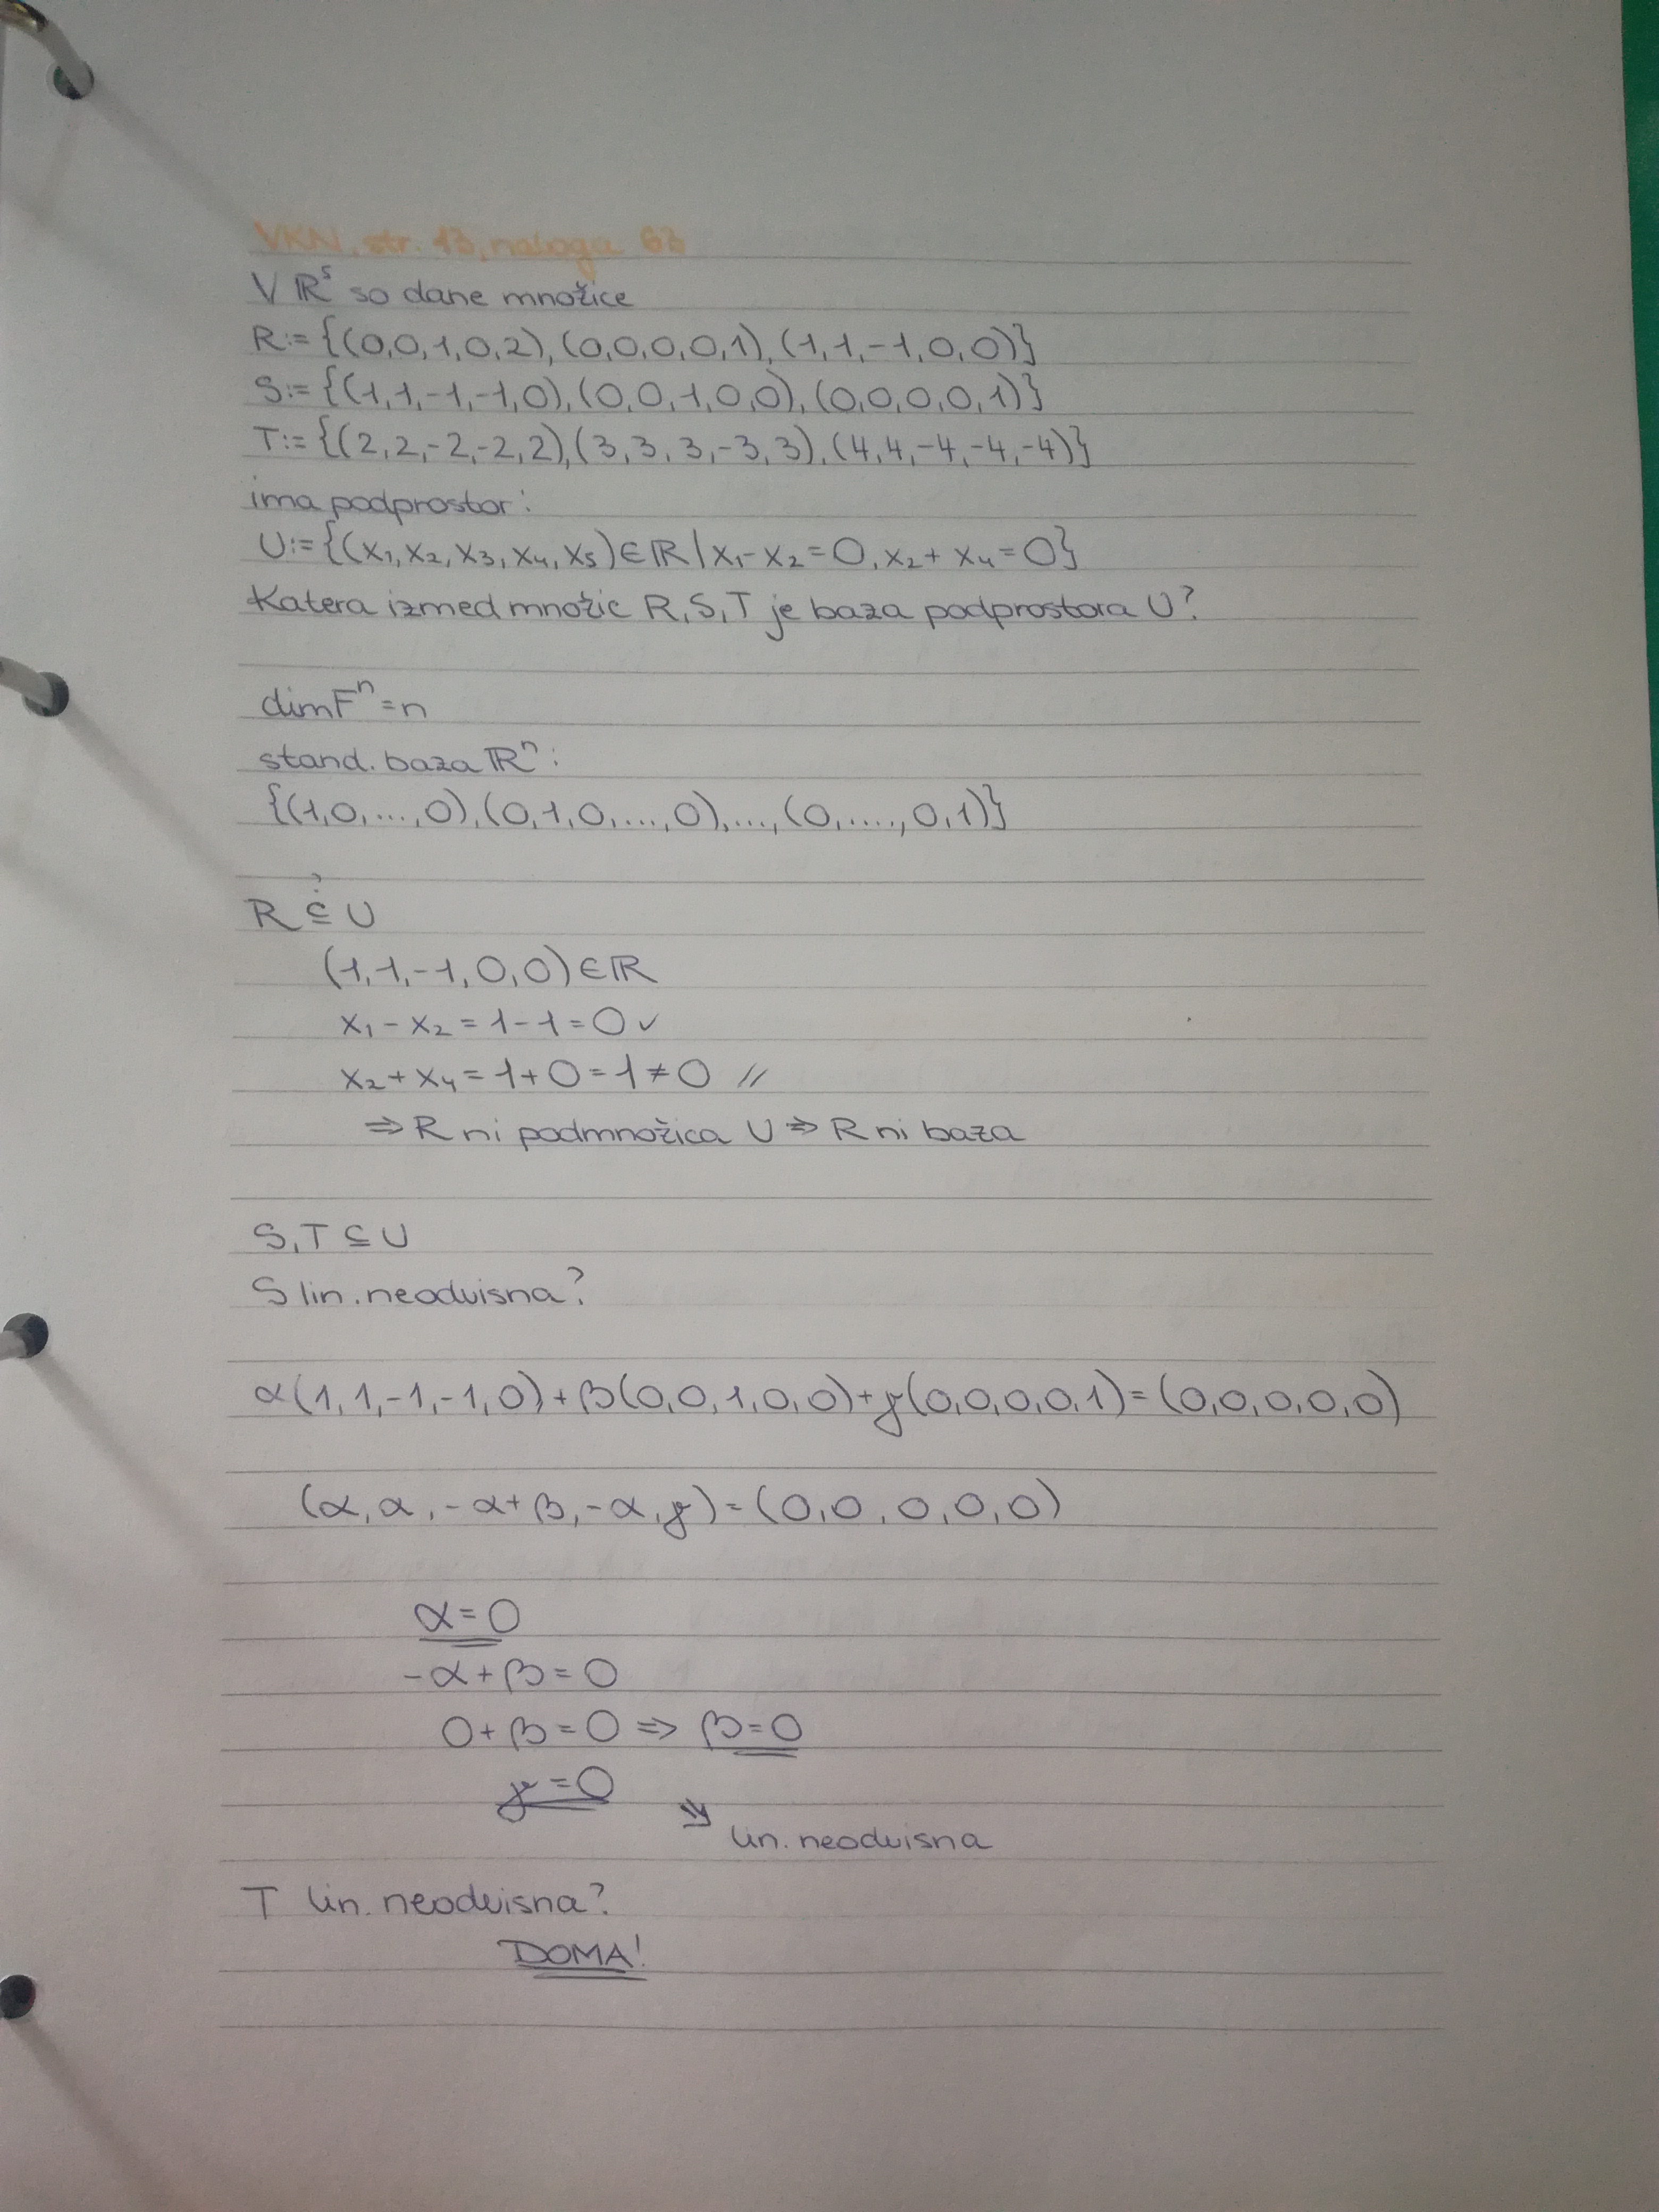 VKN, str. 13, naloga 63
V ℝ⁵ so dane množice
R:={(0,0,1,0,2),(0,0,0,0,1),(1,1,-1,0,0)}
S:={(1,1,-1,-1,0),(0,0,1,0,0),(0,0,0,0,1)}
T:={(2,2,-2,-2,2),(3,3,3,-3,3),(4,4,-4,-4,-4)}
ima podprostor:
U:={(x₁,x₂,x₃,x₄,x₅)∈ℝ|x₁-x₂=0,x₂+x₄=0}
Katera izmed množic R,S,T je baza podprostora U?
dimFⁿ=n
stand. baza ℝⁿ:
{(1,0,...,0),(0,1,0,...,0),...,(0,.....,0,1)}
R ⊆? U
(1,1,-1,0,0)∈ℝ
x₁-x₂=1-1=0✓
x₂+x₄=1+0=1≠0 //
⇒ R ni podmnožica U ⇒ R ni baza
S,T ⊆ U
S lin. neodvisna?
α(1,1,-1,-1,0)+β(0,0,1,0,0)+γ(0,0,0,0,1)=(0,0,0,0,0)
(α,α,-α+β,-α,γ)=(0,0,0,0,0)
α=0
-α+β=0
0+β=0 ⇒ β=0
γ=0
⇘ lin. neodvisna
T lin. neodvisna?
DOMA!